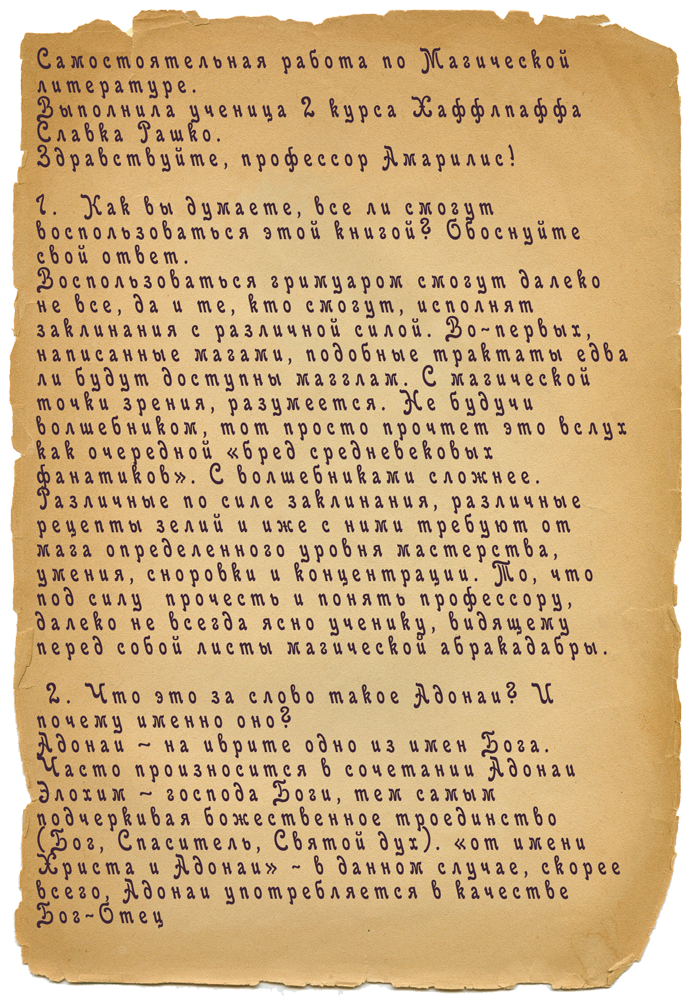 Самостоятельная работа по Магической
литературе.
Выполнила ученица 2 курса Хаффлпаффа
Славка Рашко.
Здравствуйте, профессор Амарилис!
1. Как вы думаете, все ли смогут
воспользоваться этой книгой? Обоснуйте
свой ответ.
Воспользоваться гримуаром смогут далеко
не все, да и те, кто смогут, исполнят
заклинания с различной силой. Во-первых,
написанные магами, подобные трактаты едва
ли будут доступны магглам. С магической
точки зрения, разумеется. Не будучи
волшебником, тот просто прочтет это вслух
как очередной «бред средневековых
фанатиков». С волшебниками сложнее.
Различные по силе заклинания, различные
рецепты зелий и иже с ними требуют от
мага определенного уровня мастерства,
умения, сноровки и концентрации. То, что
под силу прочесть и понять профессору,
далеко не всегда ясно ученику, видящему
перед собой листы магической абракадабры.
2. Что это за слово такое Адонаи? И
почему именно оно?
Адонаи - на иврите одно из имен Бога.
Часто произносится в сочетании Адонаи
Элохим - господа Боги, тем самым
подчеркивая божественное троединство
(Бог, Спаситель, Святой дух). «от имени
Христа и Адонаи» - в данном случае, скорее
всего, Адонаи употребляется в качестве
Бог-Отец